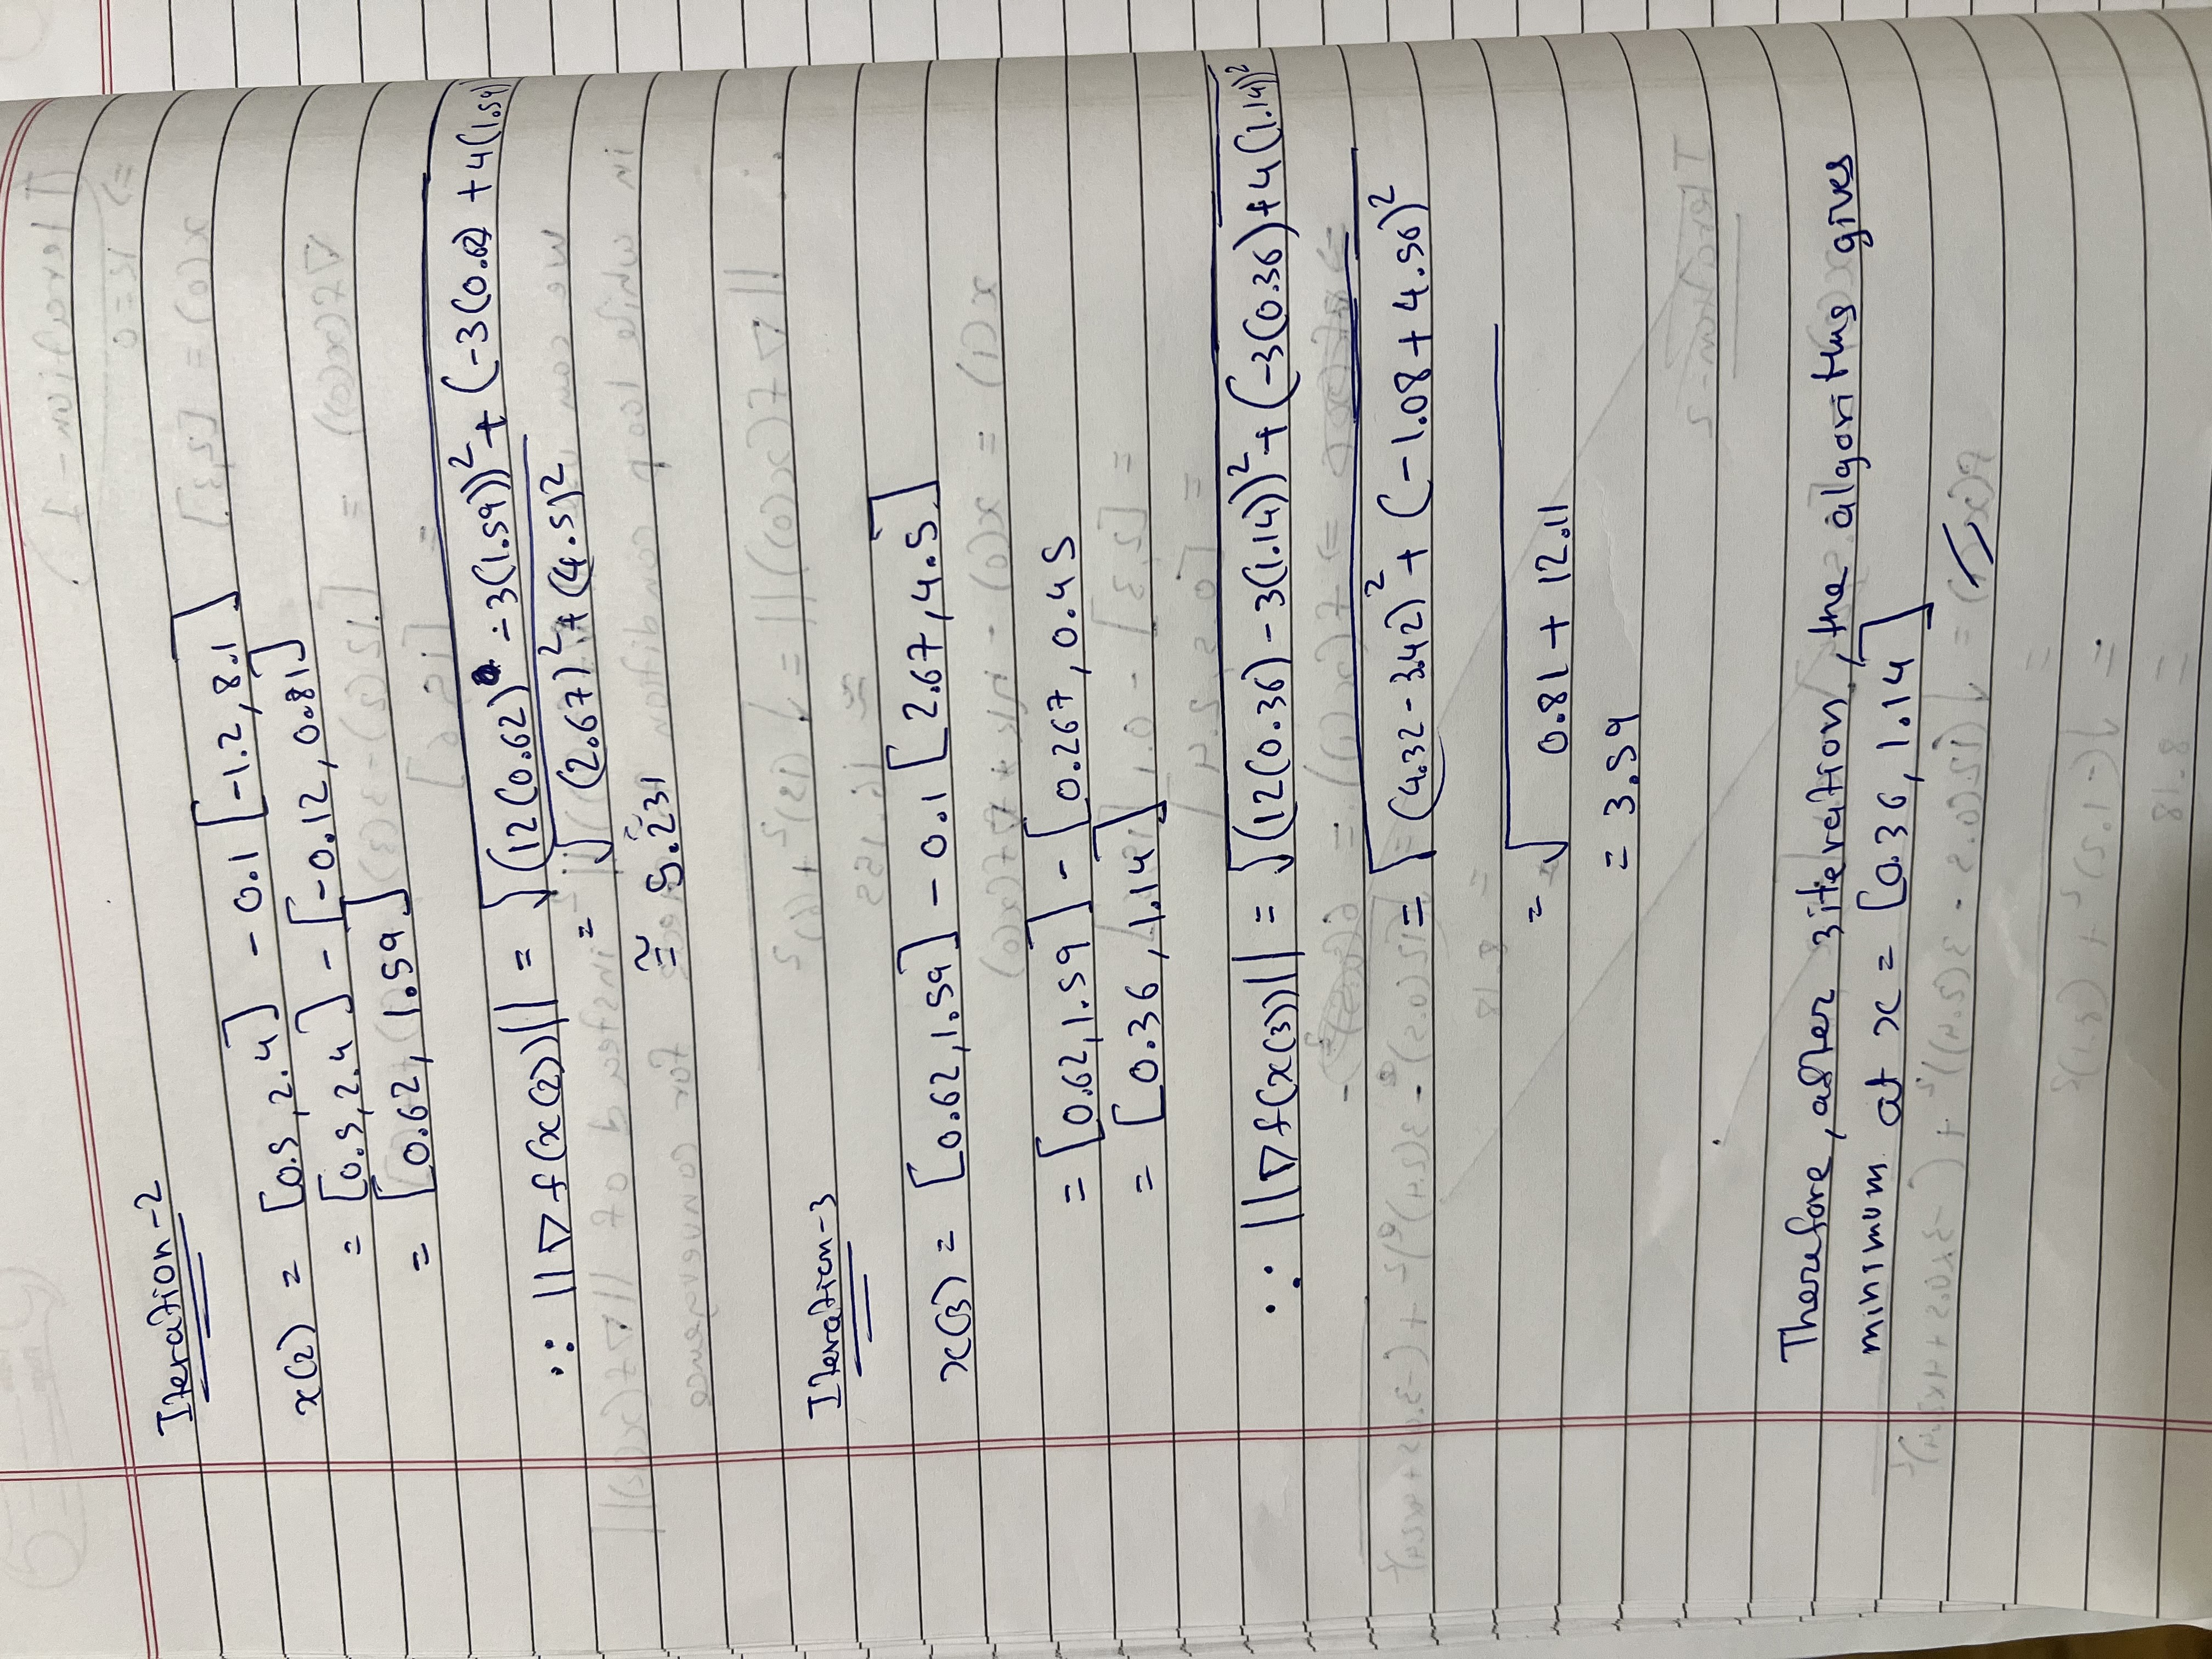 Iteration-2
x(2) = [0.5, 2.4] - 0.1 [-1.2, 8.1]
= [0.5, 2.4] - [-0.12, 0.81]
= [0.62, 1.59]
∵ ||∇f(x(2))|| = √(12(0.62) - 3(1.59))² + (-3(0.62) + 4(1.59)
= √(2.67)² + (4.5)²
≅ 5.231
Iteration-3
x(3) = [0.62, 1.59] - 0.1 [2.67, 4.5]
= [0.62, 1.59] - [0.267, 0.45
= [0.36, 1.14]
∵ ||∇f(x(3))|| = √(12(0.36) - 3(1.14))² + (-3(0.36) + 4(1.14))²
= √(4.32 - 3.42)² + (-1.08 + 4.56)²
= √0.81 + 12.11
= 3.59
Therefore, after 3 iteration, the algorithms gives
minimum at x = [0.36, 1.14]